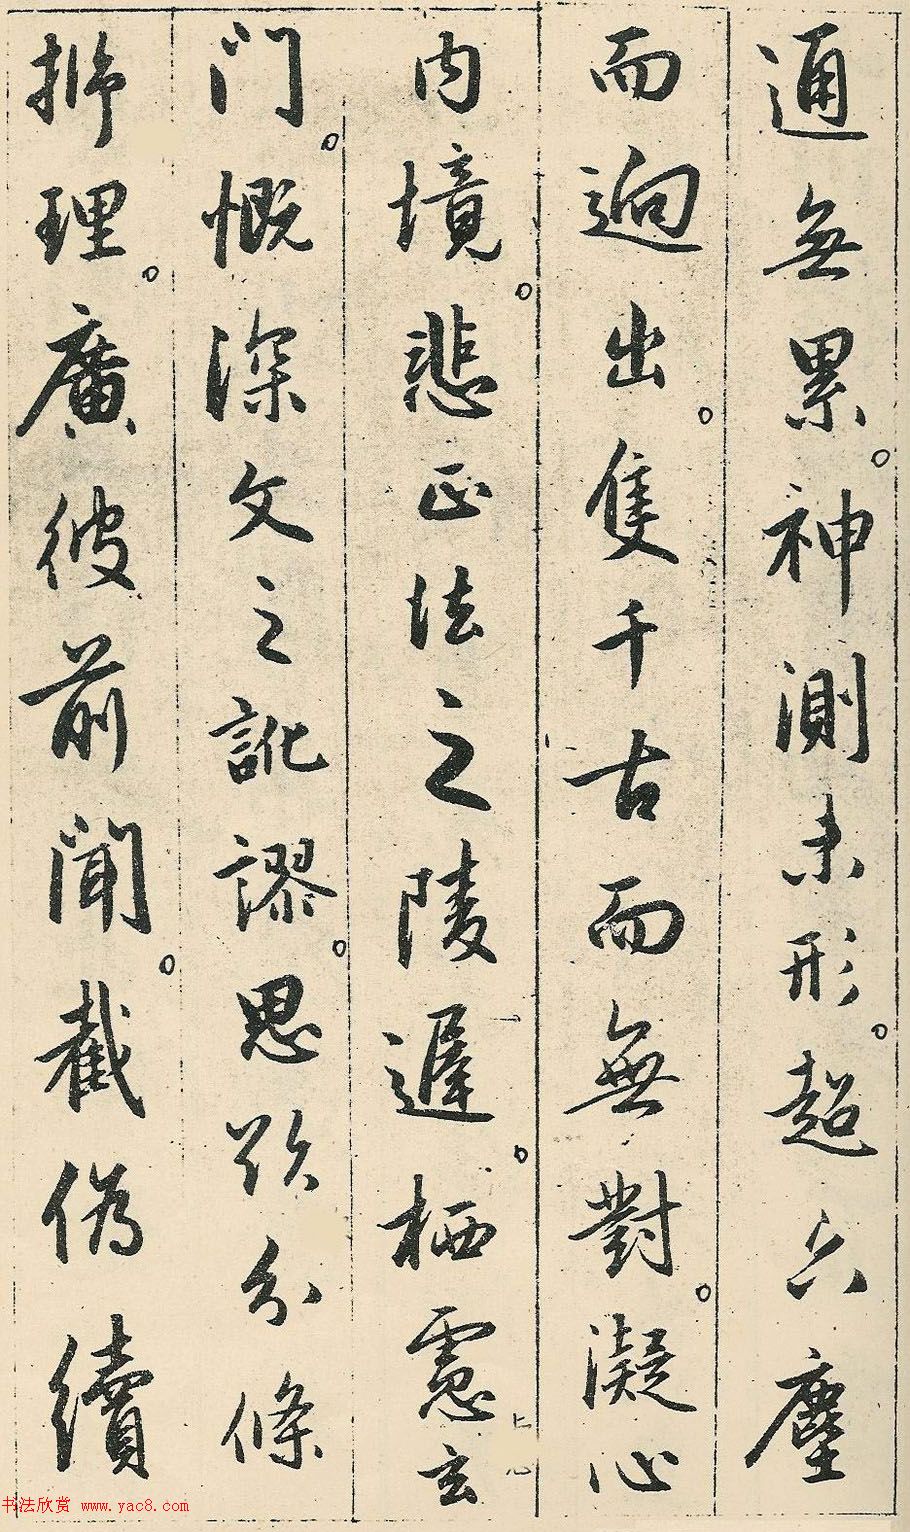 通無累。神測未形。超六塵
而迥出。隻千古而無對。凝心
內境。悲正法之陵遲。栖慮玄
門。慨深文之訛謬。思欲分條
析理。廣彼前聞。截偽續
书法欣赏 www.yac8.com